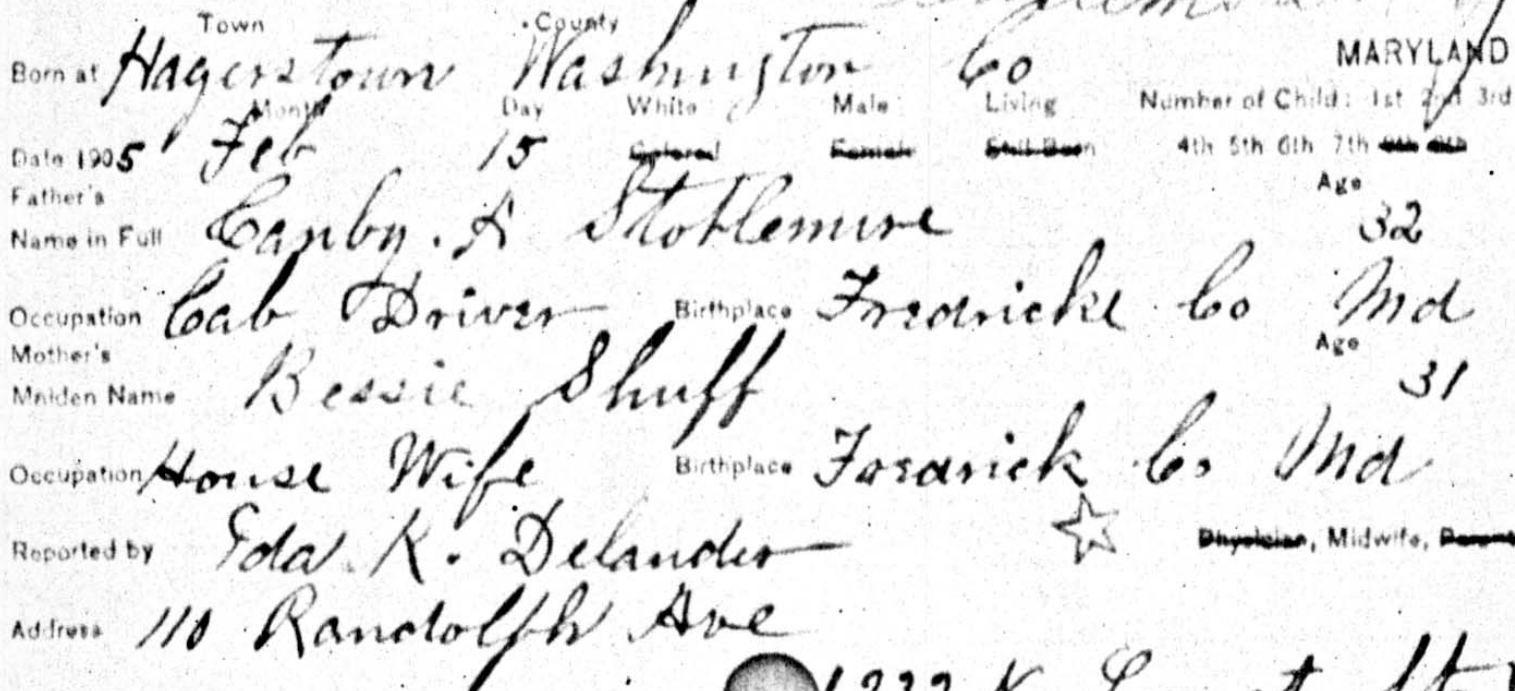 Town County
MARYLAND
Born at Hagerstown Washington Co
Month Day White Male Living Number of Child: 1st 2nd 3rd
Date 1905 Feb 15 Colored Female Still Born 4th 5th 6th 7th 8th 9th
Father's Age
Name in Full Canby. A Stotlemire 32
Occupation Cab Driver Birthplace Fredricke Co Md
Mother's Age
Maiden Name Bessie Shuff 31
Occupation House Wife Birthplace Fredrick Co Md
Reported by Ida K. Delander Physician, Midwife, Parent
Address 110 Randolph Ave